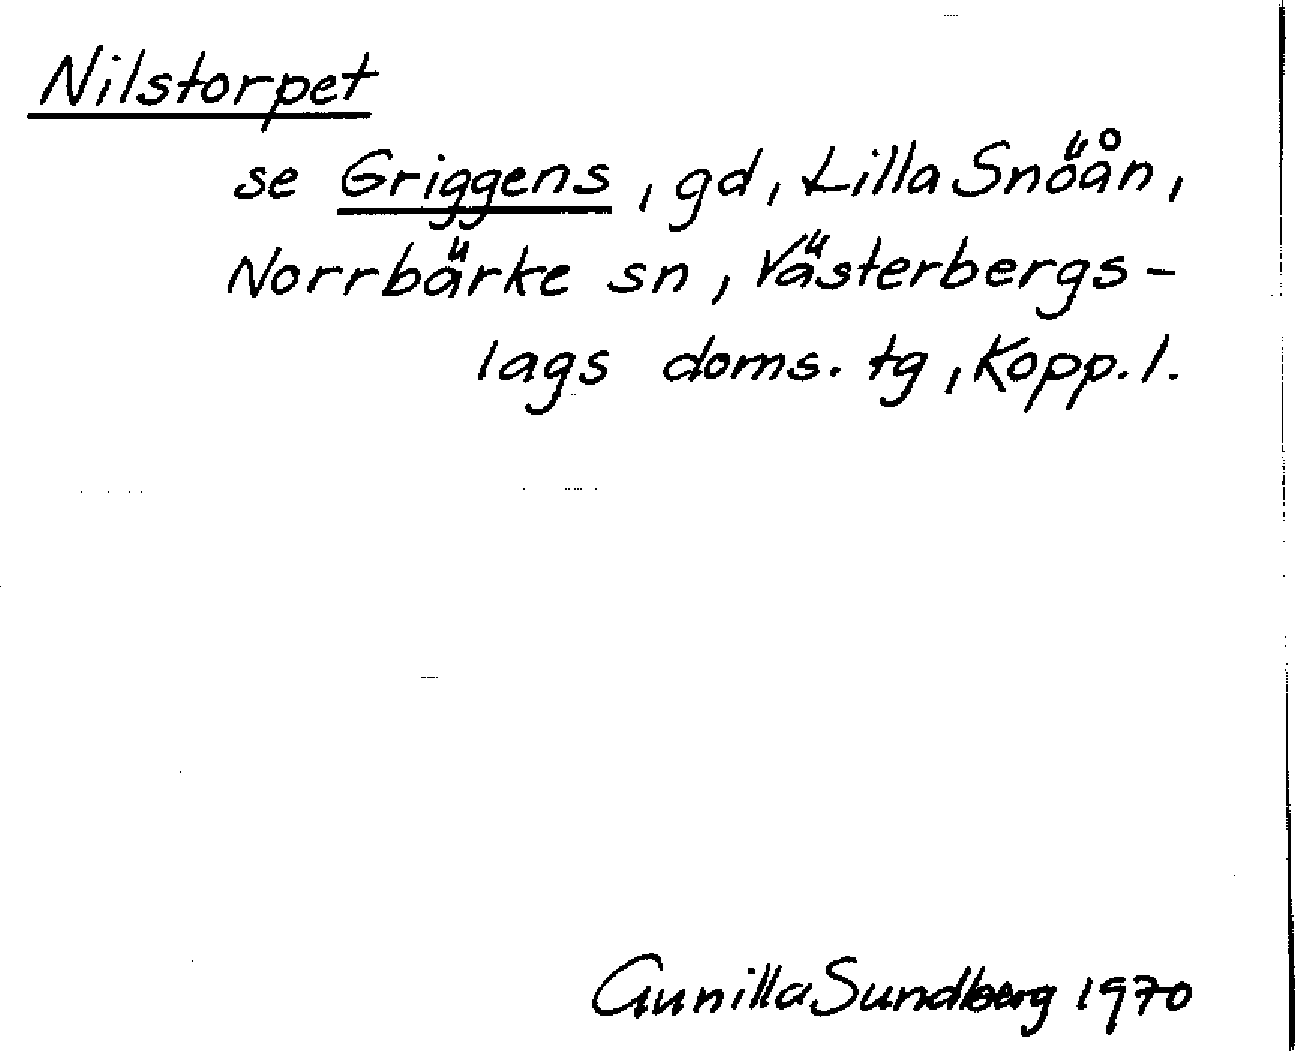 Nilstorpet
se Griggens, gd, Lilla Snöån,
Norrbärke sn, Västerbergs-
lags doms. tg, Kopp. l.
Gunilla Sundberg 1970